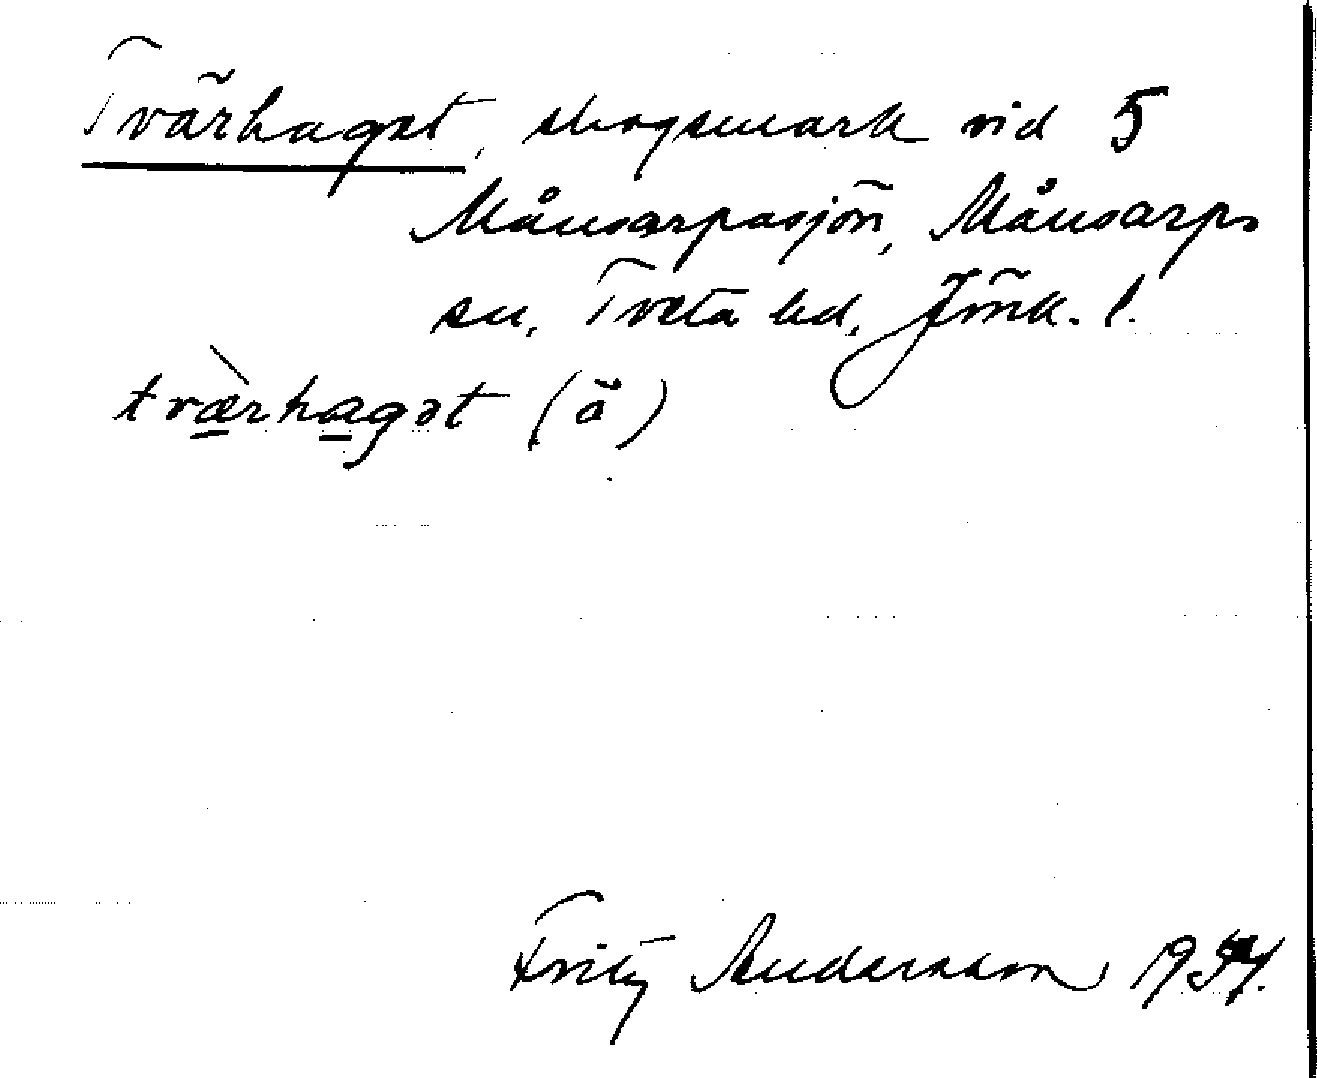 Tvärhaget, skogsmark vid 5
Månsarpasjön, Månsarps
sn, Tveta hd, Jönk. l.
tværhagət (ä)
Fritz Andersson